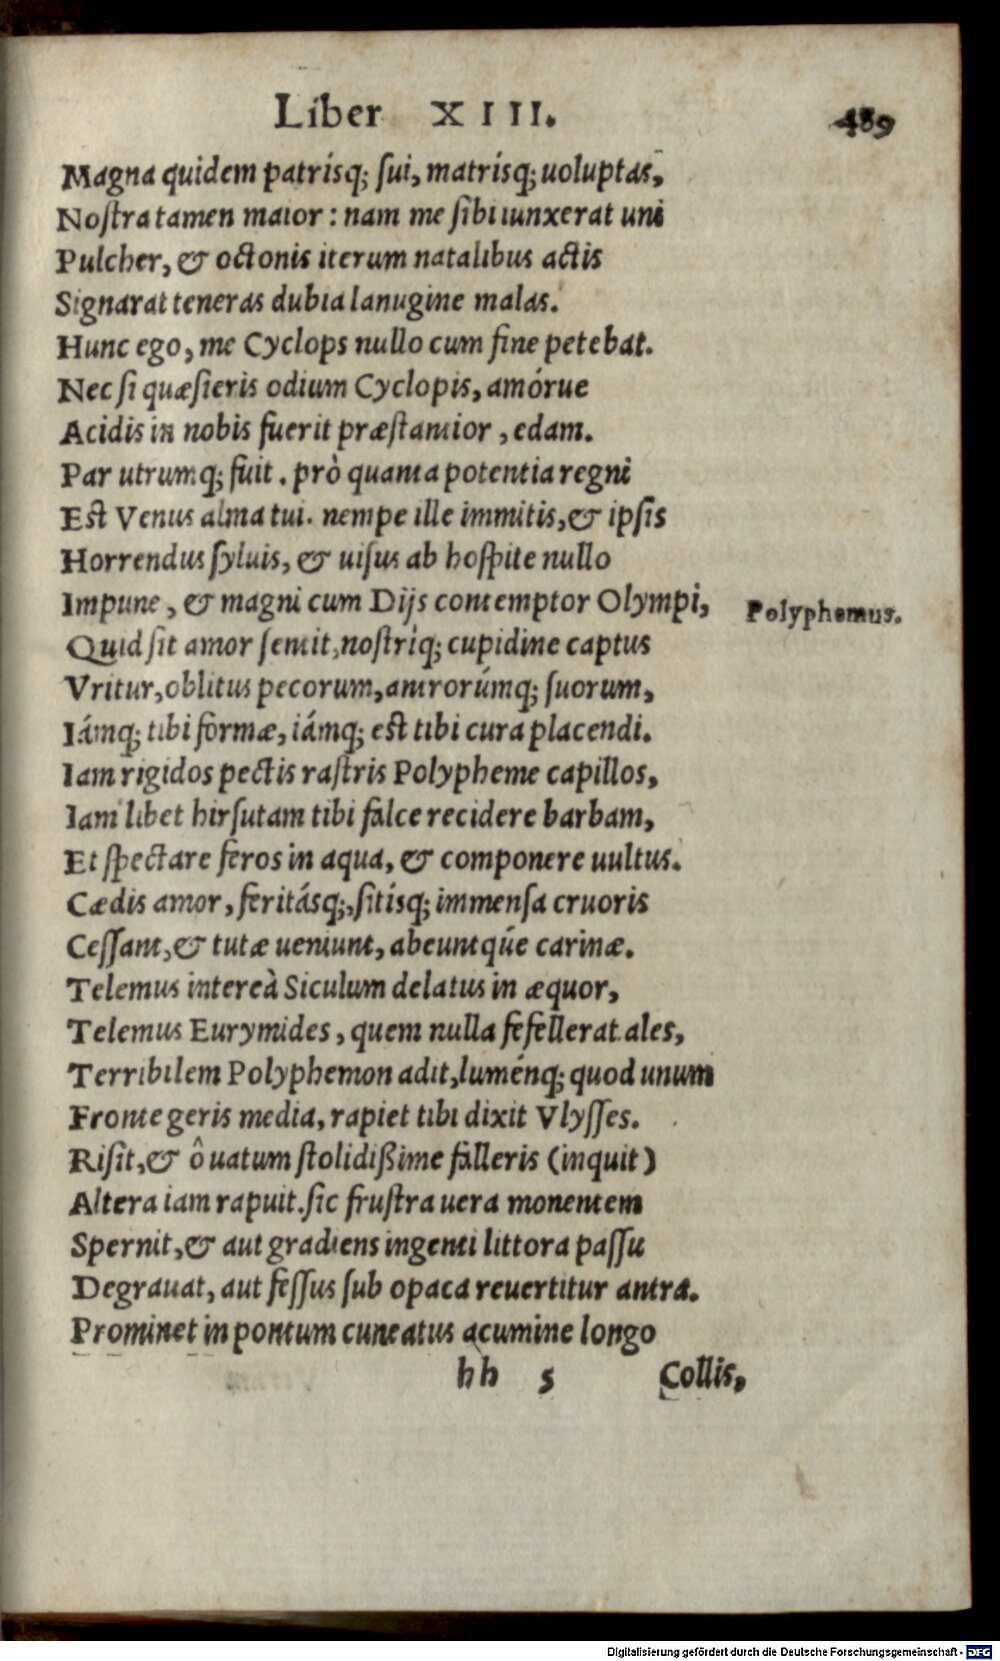 Liber XIII. 489
Magna quidem patrísq; sui, matrísq; uoluptas,
Nostra tamen maior: nam me sibi iunxerat uni
Pulcher, & octonis iterum natalibus actis
Signarat teneras dubia lanugine malas.
Hunc ego, me Cyclops nullo cum fine petebat.
Nec si quæsieris odium Cyclopis, amórue
Acidis in nobis fuerit præstantior, edam.
Par utrumq; fuit. prò quanta potentia regni
Est Venus alma tui. nempe ille immitis, & ipsis
Horrendus syluis, & uisus ab hospite nullo
Impune, & magni cum Dijs contemptor Olympi,
Polyphemus.
Quid sit amor sentit, nostríq; cupidine captus
Vritur, oblitus pecorum, antrorúmq; suorum,
Iámq; tibi formæ, iámq; est tibi cura placendi.
Iam rigidos pectis rastris Polypheme capillos,
Iam libet hirsutam tibi falce recidere barbam,
Et spectare feros in aqua, & componere uultus.
Cædis amor, feritásq;, sitísq; immensa cruoris
Cessant, & tutæ ueniunt, abeuntqúe carinæ.
Telemus intereà Siculum delatus in æquor,
Telemus Eurymides, quem nulla fefellerat ales,
Terribilem Polyphemon adit, luménq; quod unum
Fronte geris media, rapiet tibi dixit Vlysses.
Risit, & ô uatum stolidißime falleris (inquit)
Altera iam rapuit. sic frustra uera monentem
Spernit, & aut gradiens ingenti littora passu
Degrauat, aut fessus sub opaca reuertitur antra.
Prominet in pontum cuneatus acumine longo
hh 5 Collis,
Digitalisierung gefördert durch die Deutsche Forschungsgemeinschaft - DFG